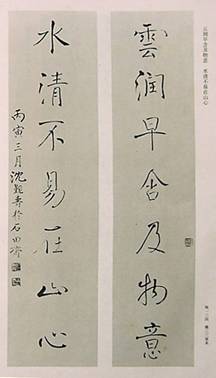 云润早含及物意 水清不易在山心
雲润早含及物意
水清不易在山心
丙寅三月沈觐寿於石田齋